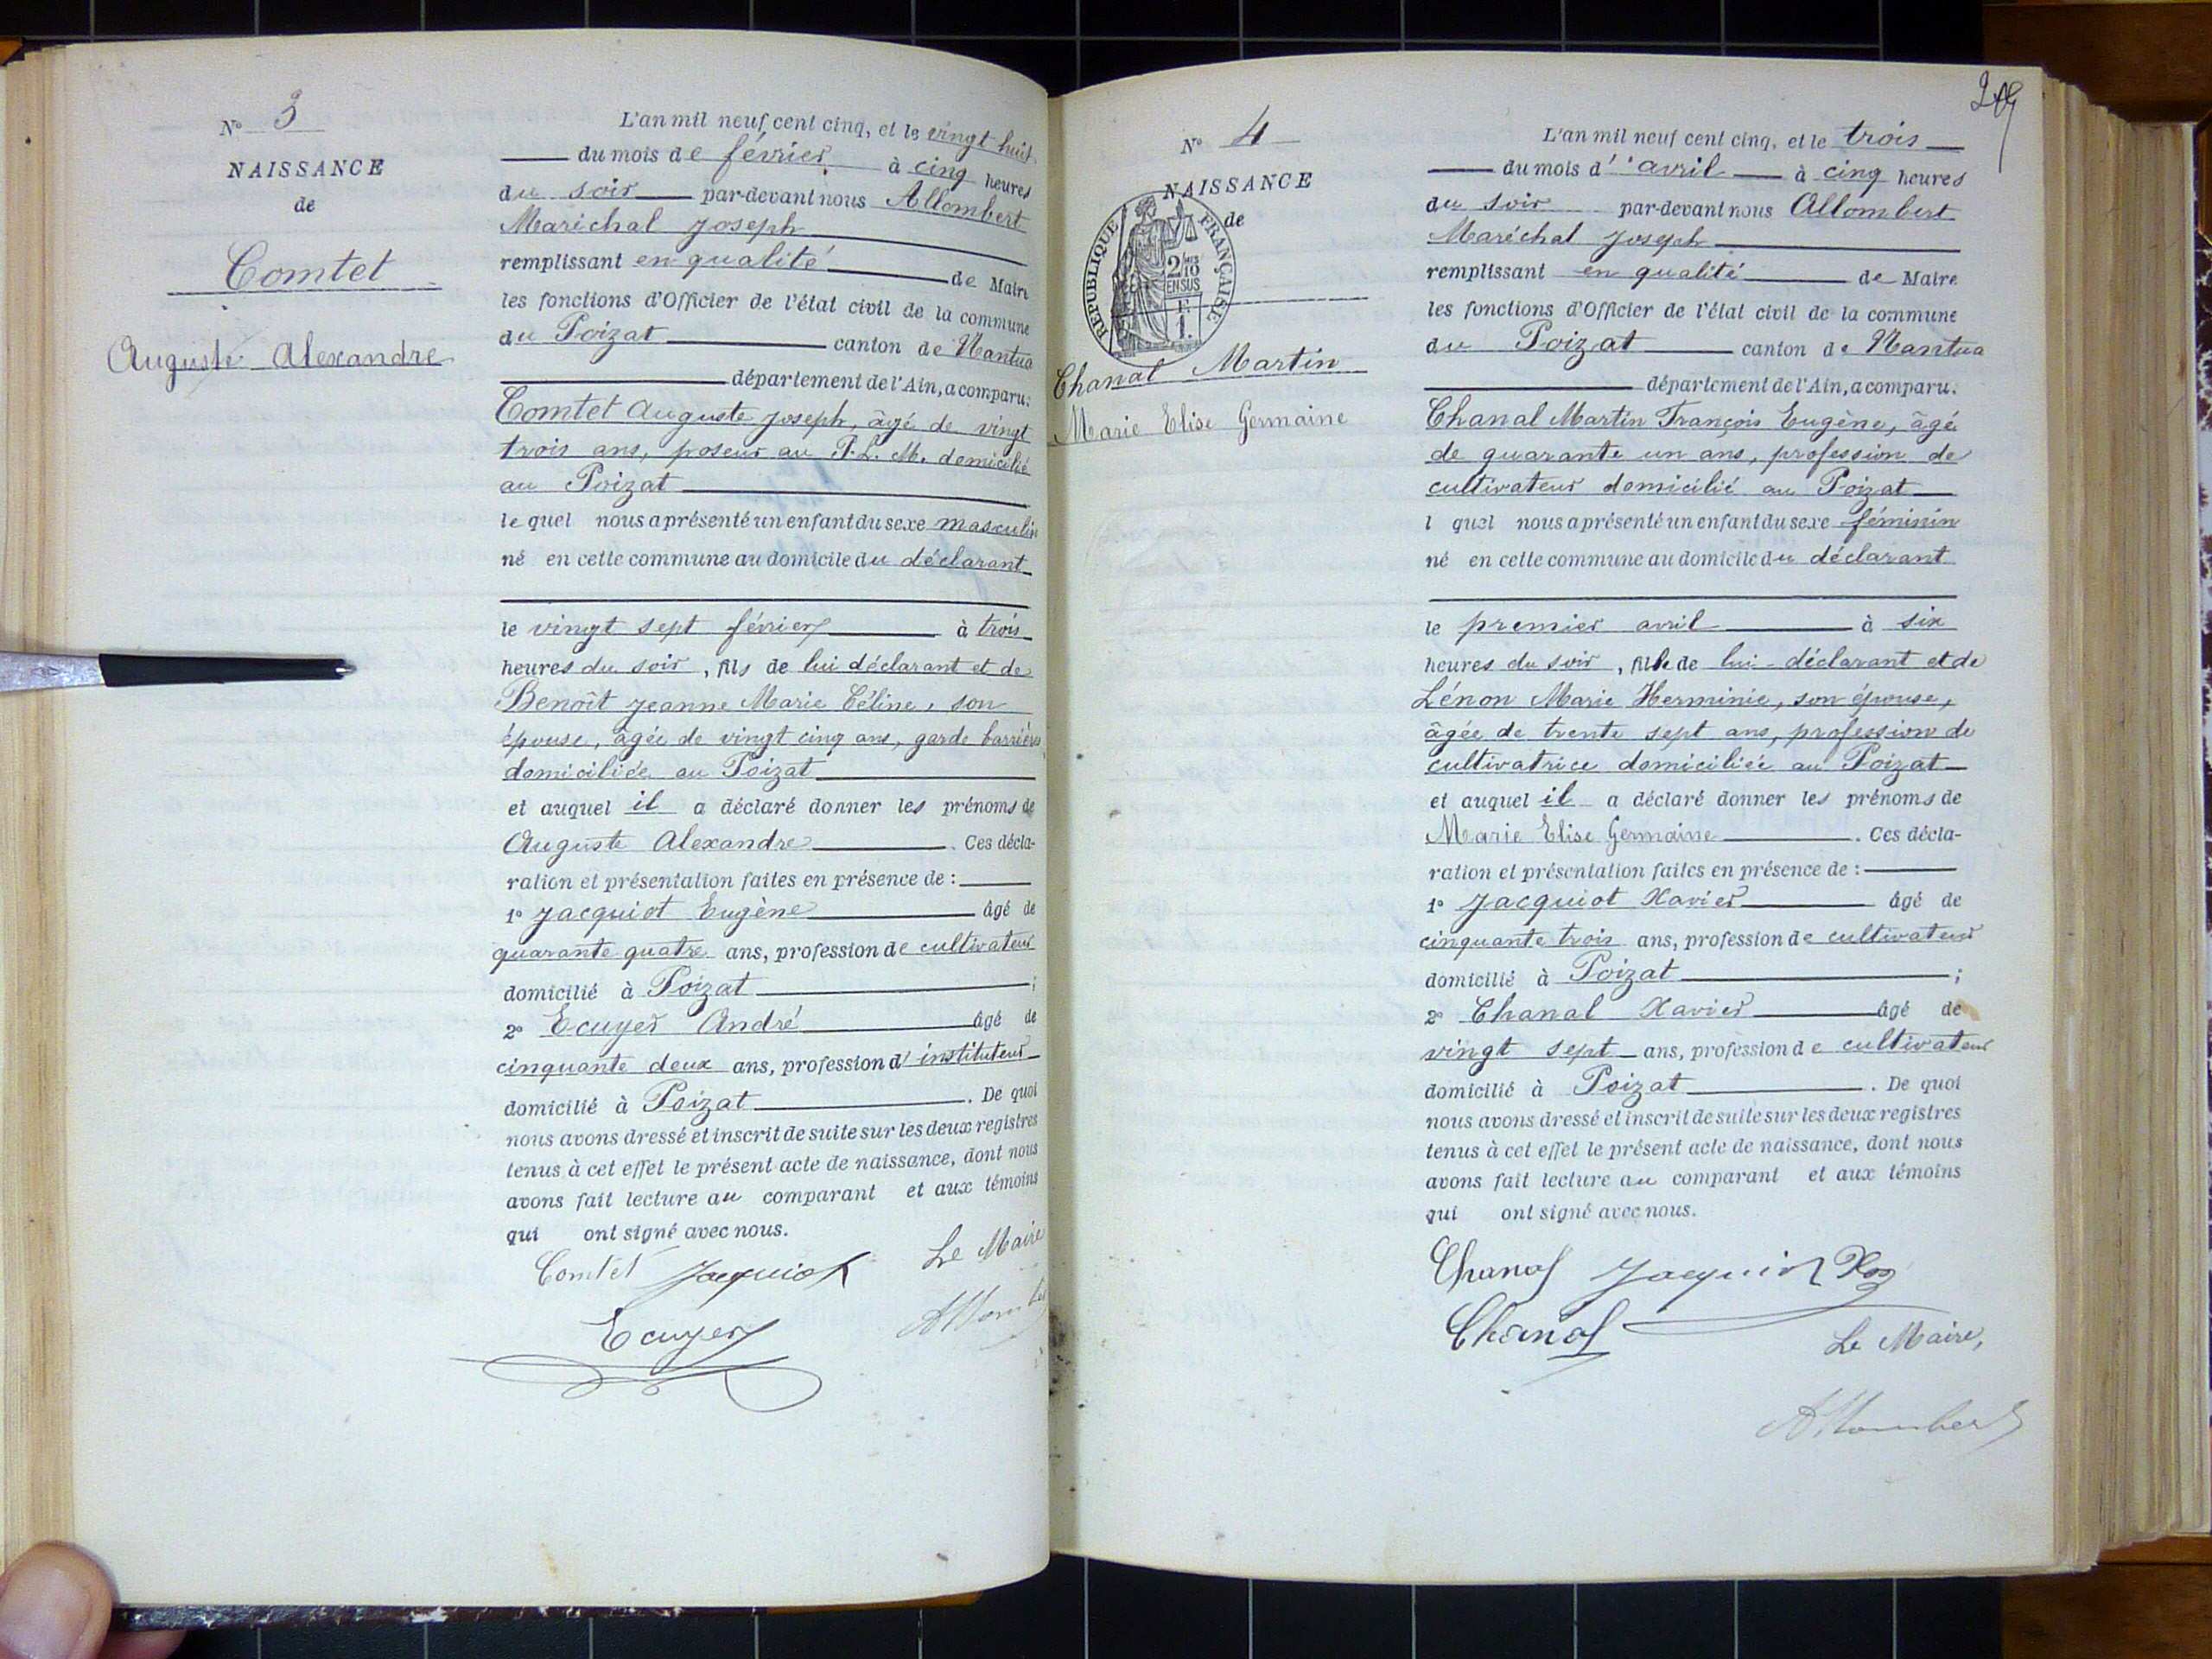 N° 3
NAISSANCE
de
Comtet
Auguste Alexandre
L'an mil neuf cent cinq, et le vingt huit
du mois de février à cinq heures
du soir par-devant nous Allombert
Maréchal Joseph
remplissant en qualité de Maire
les fonctions d'Officier de l'état civil de la commune
du Poizat canton de Nantua
département de l'Ain, a comparu:
Comtet Auguste Joseph, âgé de vingt
trois ans, poseur au P. L. M. domicilié
au Poizat
lequel nous a présenté un enfant du sexe masculin
né en cette commune au domicile du déclarant
le vingt sept février à trois
heures du soir, fils de lui déclarant et de
Benoît Jeanne Marie Céline, son
épouse, âgée de vingt cinq ans, garde barrières
domiciliée au Poizat
et auquel il a déclaré donner les prénoms de
Auguste Alexandre. Ces décla-
ration et présentation faites en présence de :
1° Jacquiot Eugène âgé de
quarante quatre ans, profession de cultivateur
domicilié à Poizat ;
2° Ecuyer André âgé de
cinquante deux ans, profession d'instituteur
domicilié à Poizat. De quoi
nous avons dressé et inscrit de suite sur les deux registres
tenus à cet effet le présent acte de naissance, dont nous
avons fait lecture au comparant et aux témoins
qui ont signé avec nous.
Comtet Jacquiot Le Maire
Ecuyer Allombert
249
N° 4
NAISSANCE
de
RÉPUBLIQUE FRANÇAISE
2/10
EN SUS
F.
1.
Chanal Martin
Marie Elise Germaine
L'an mil neuf cent cinq, et le trois
du mois d'avril à cinq heures
du soir par-devant nous Allombert
Maréchal Joseph
remplissant en qualité de Maire
les fonctions d'Officier de l'état civil de la commune
du Poizat canton de Nantua
département de l'Ain, a comparu.
Chanal Martin François Eugène, âgé
de quarante un ans, profession de
cultivateur domicilié au Poizat
l quel nous a présenté un enfant du sexe féminin
né en cette commune au domicile du déclarant
le premier avril à six
heures du soir, fille de lui déclarant et de
Lénon Marie Herminie, son épouse,
âgée de trente sept ans, profession de
cultivatrice domiciliée au Poizat
et auquel il a déclaré donner les prénoms de
Marie Elise Germaine. Ces décla-
ration et présentation faites en présence de :
1° Jacquiot Xavier âgé de
cinquante trois ans, profession de cultivateur
domicilié à Poizat ;
2° Chanal Xavier âgé de
vingt sept ans, profession de cultivateur
domicilié à Poizat. De quoi
nous avons dressé et inscrit de suite sur les deux registres
tenus à cet effet le présent acte de naissance, dont nous
avons fait lecture au comparant et aux témoins
qui ont signé avec nous.
Chanal Jacquiot
Chanal Le Maire,
Allombert